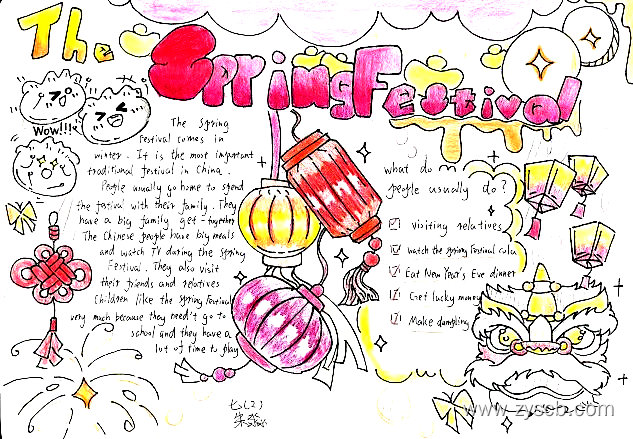 The Spring Festival
Wow!!!
The spring
Festival comes in
winter. It is the most important
traditional festival in China.
People usually go home to spend
the festival with their family. They
have a big family get-together
The Chinese people have big meals
and watch TV during the spring
Festival. They also visit
their friends and relatives
Children like the spring festival
very much because they needn't go to
school and they have a
lot of time to play
what do
people usually do?
visiting relatives
watch the spring Festival Gala
Eat New Year's Eve dinner
Get lucky money
Make dumpling
七(2)
www.zyscb.com